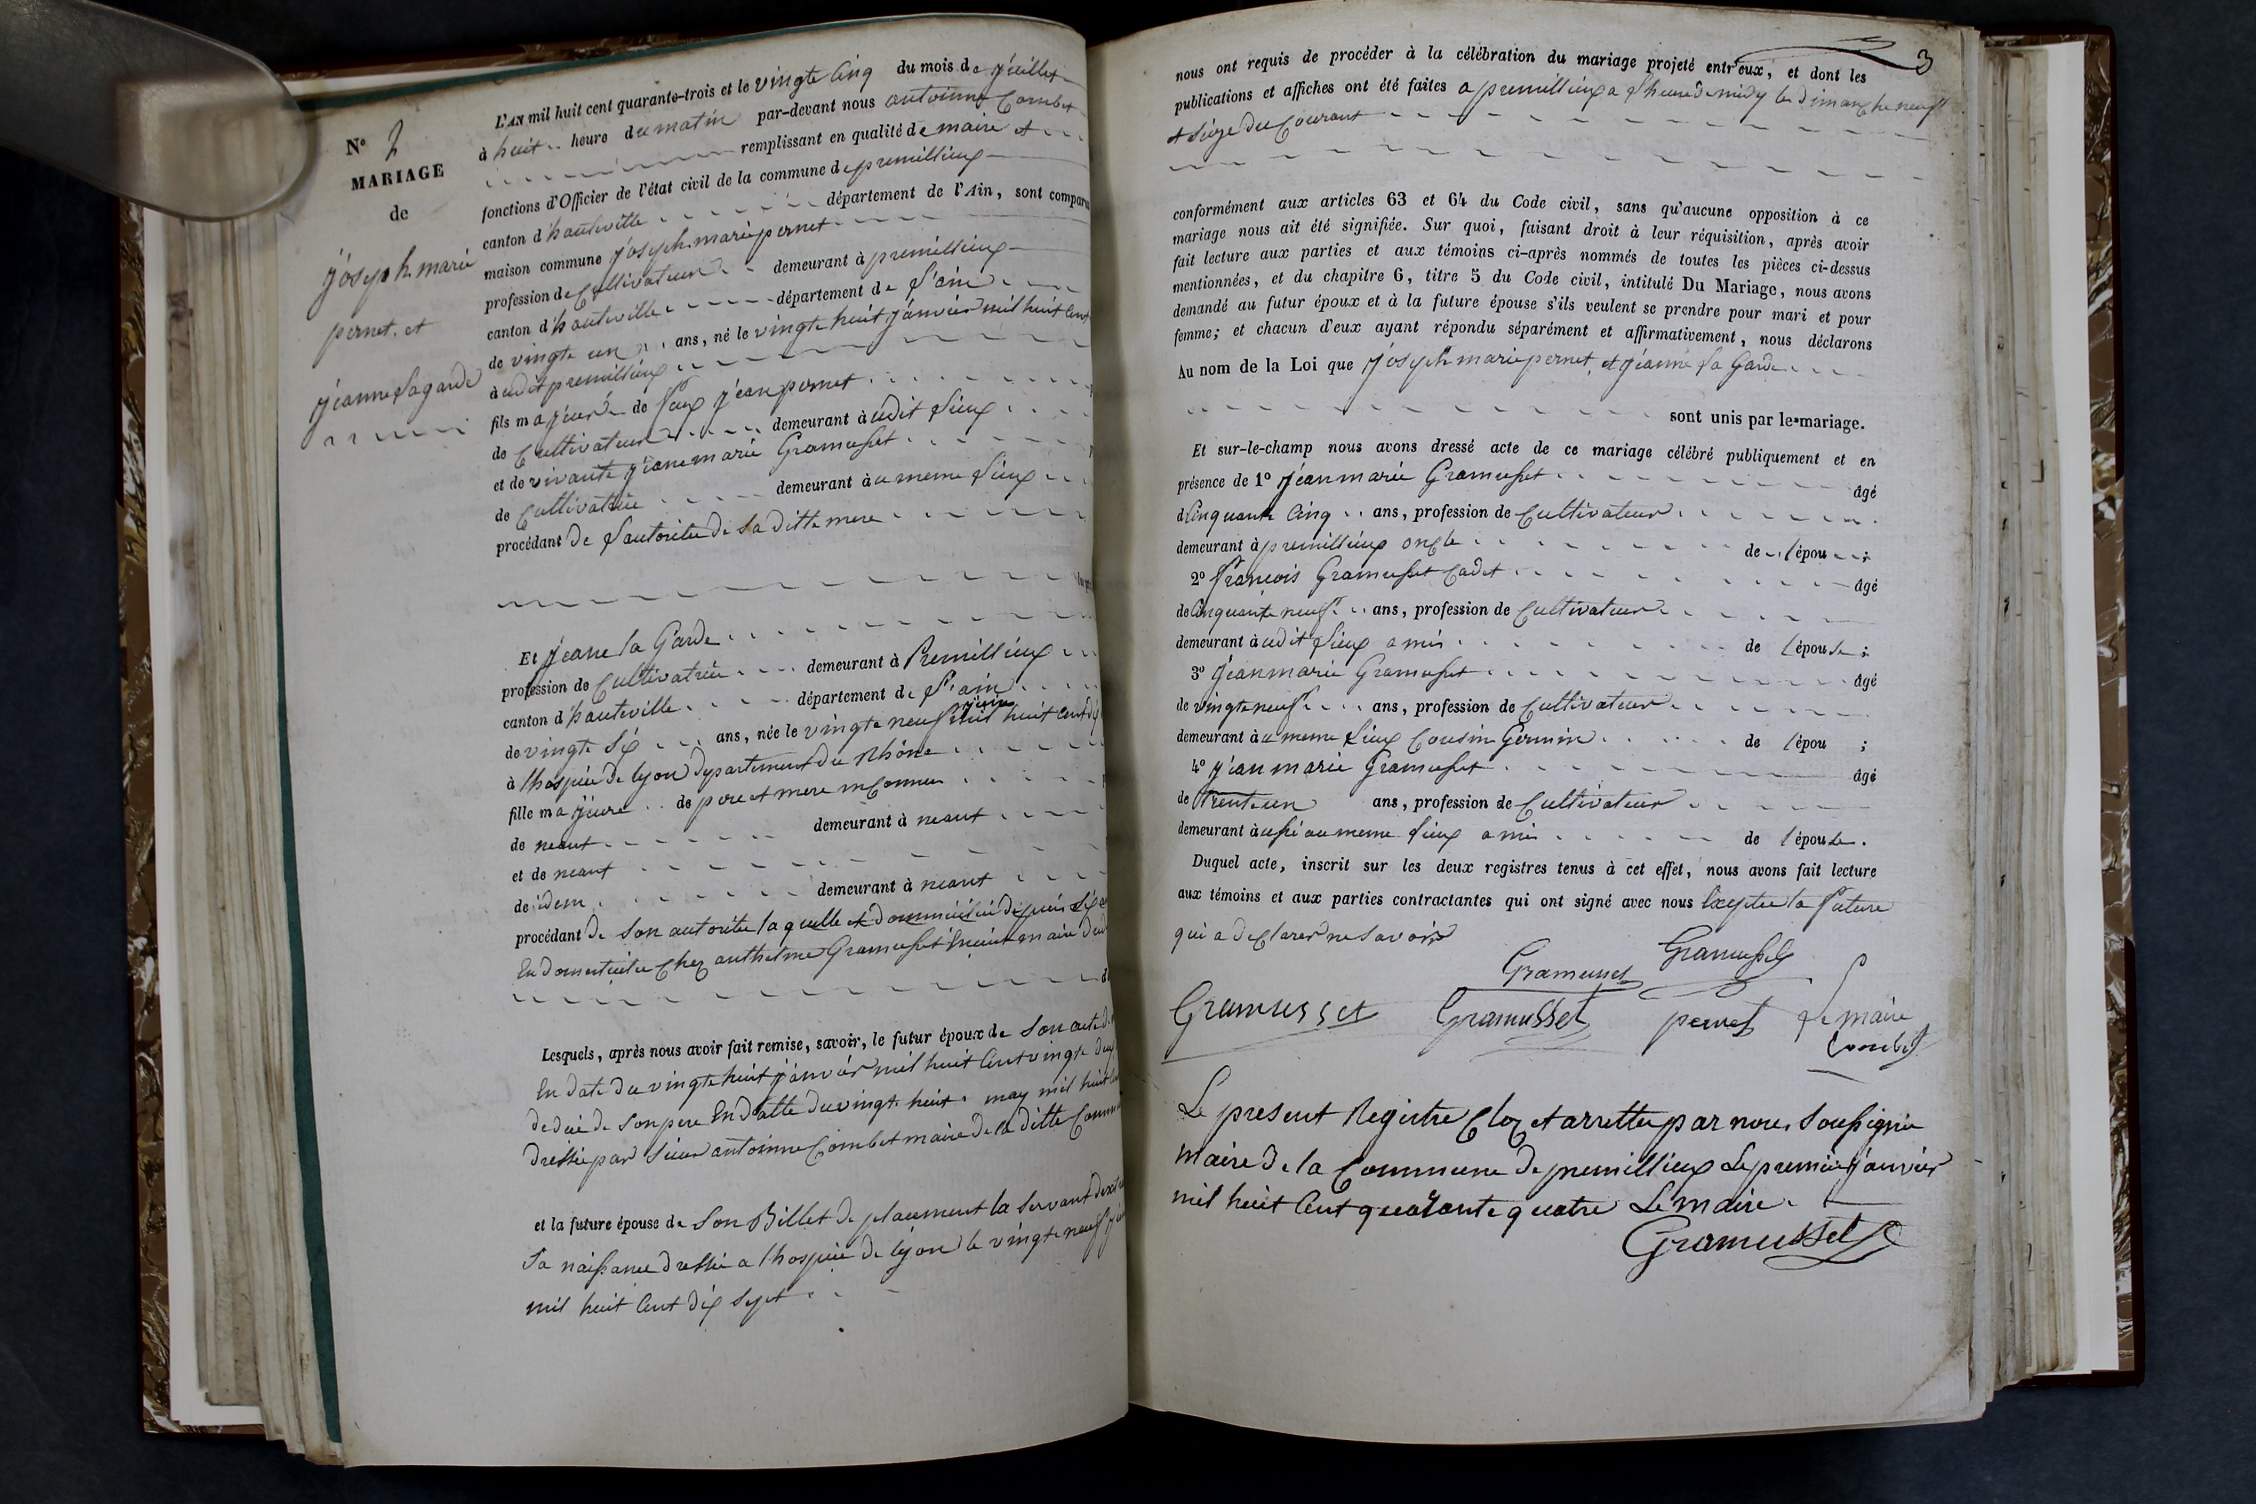 N° 2
MARIAGE
de
joseph marie
pernet. et
jeanne lagarde
L'AN mil huit cent quarante-trois et le vingte Cinq du mois de juillet
à huit heure du matin par-devant nous antoinne Combet
remplissant en qualité de maire et
fonctions d'Officier de l'état civil de la commune de premillieux
canton d'hauteville département de l'Ain, sont comparus
maison commune joseph marie pernet
profession de Cultivateur demeurant à premillieux
canton d'hauteville département de l'ain
de vingte un ans, né le vingte huit janvier mil huit Cent
audit premillieux
fils majeur de feux jean pernet
de Cultivateur demeurant audit lieux
et de vivante jeane marie Gramusset
de Cultivatrice demeurant au meme lieux
procédant de l'autoritée de Sa ditte mere
Et jeane la Garde
profession de Cultivatrice demeurant à Premillieux
canton d'hauteville département de l'ain
juin
de vingte Six ans, née le vingte neuf mil huit Cent dix
à lhospice de lyon departement du Rhône
fille majeure de pere et mere inConnu
de neant demeurant à neant
et de neant
de idem demeurant à neant
procédant de Son autoritée laquelle et domiciliée depuis Six
En domesticitée Chez anthelme Gramusset maire
Lesquels, après nous avoir fait remise, savoir, le futur époux de Son acte de
En date du vingte huit janvier mil huit Cent vingte deux
de dcé de Son pere En datte du vingt huit may mil huit
dressée par Sieur antoinne Combet maire de la ditte Commune
et la future épouse de Son Billet de placement la Servant
Sa naissance dressée a lhospice de lyon le vingte neuf
mil huit Cent dix Sept
3
nous ont requis de procéder à la célébration du mariage projeté entr'eux, et dont les
publications et affiches ont été faites a premillieux a lheure de midy les dimanche neuf
et Sèze du Courant
conformément aux articles 63 et 64 du Code civil, sans qu'aucune opposition à ce
mariage nous ait été signifiée. Sur quoi, faisant droit à leur réquisition, après avoir
fait lecture aux parties et aux témoins ci-après nommés de toutes les pièces ci-dessus
mentionnées, et du chapitre 6, titre 5 du Code civil, intitulé Du Mariage, nous avons
demandé au futur époux et à la future épouse s'ils veulent se prendre pour mari et pour
femme; et chacun d'eux ayant répondu séparément et affirmativement, nous déclarons
Au nom de la Loi que joseph marie pernet et jeanne la Garde
sont unis par le mariage.
Et sur-le-champ nous avons dressé acte de ce mariage célébré publiquement et en
présence de 1° jean marie Gramusset âgé
de Cinquante Cinq ans, profession de Cultivateur
demeurant à premillieux oncle de l'épou ;
2° françois Gramusset Cadet âgé
de Cinquante neuf ans, profession de Cultivateur
demeurant audit lieux amis de l'épouse ;
3° jean marie Gramusset âgé
de vingte neuf ans, profession de Cultivateur
demeurant au meme lieux Cousin Germin de l'épou ;
4° jean marie Gramusset âgé
de Trente un ans, profession de Cultivateur
demeurant aussi au meme lieux amis de l'épouse.
Duquel acte, inscrit sur les deux registres tenus à cet effet, nous avons fait lecture
aux témoins et aux parties contractantes qui ont signé avec nous Excepter la future
qui a declarer ne Savoir
Gramusset Gramusset
Gramusset Gramusset pernet Le maire
Combet
Le present Registre Cloz et arretter par nous Soussignée
Maire de la Commune de premillieux Le premier janvier
mil huit Cent quarante quatre Le maire
Gramusset